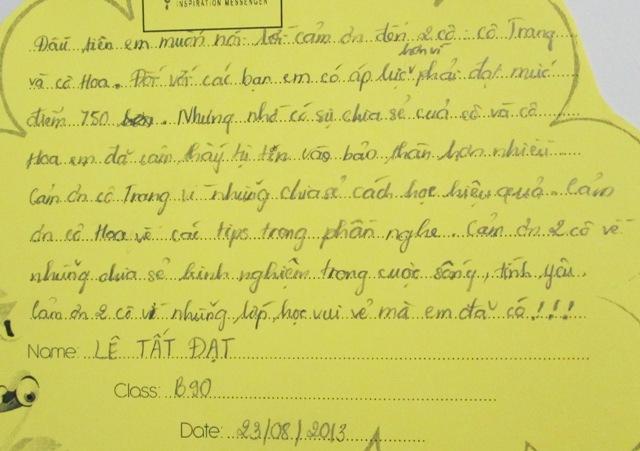 INSPIRATION MESSENGER
Đầu tiên em muốn nói lời cảm ơn đến 2 cô: cô Trang
và cô Hoa. Đối với các bạn em có áp lực hơn vì phải đạt mức
điểm 750. Nhưng nhờ có sự chia sẻ của cô và cô
Hoa em đã cảm thấy tự tin vào bản thân hơn nhiều
Cảm ơn cô Trang vì những chia sẻ cách học hiệu quả. Cảm
ơn cô Hoa về các tips trong phần nghe. Cảm ơn 2 cô về
những chia sẻ kinh nghiệm trong cuộc sống, tình yêu.
Cảm ơn 2 cô vì những lớp học vui vẻ mà em đã có!!!
Name: LÊ TẤT ĐẠT
Class: B90
Date: 23/08/2013